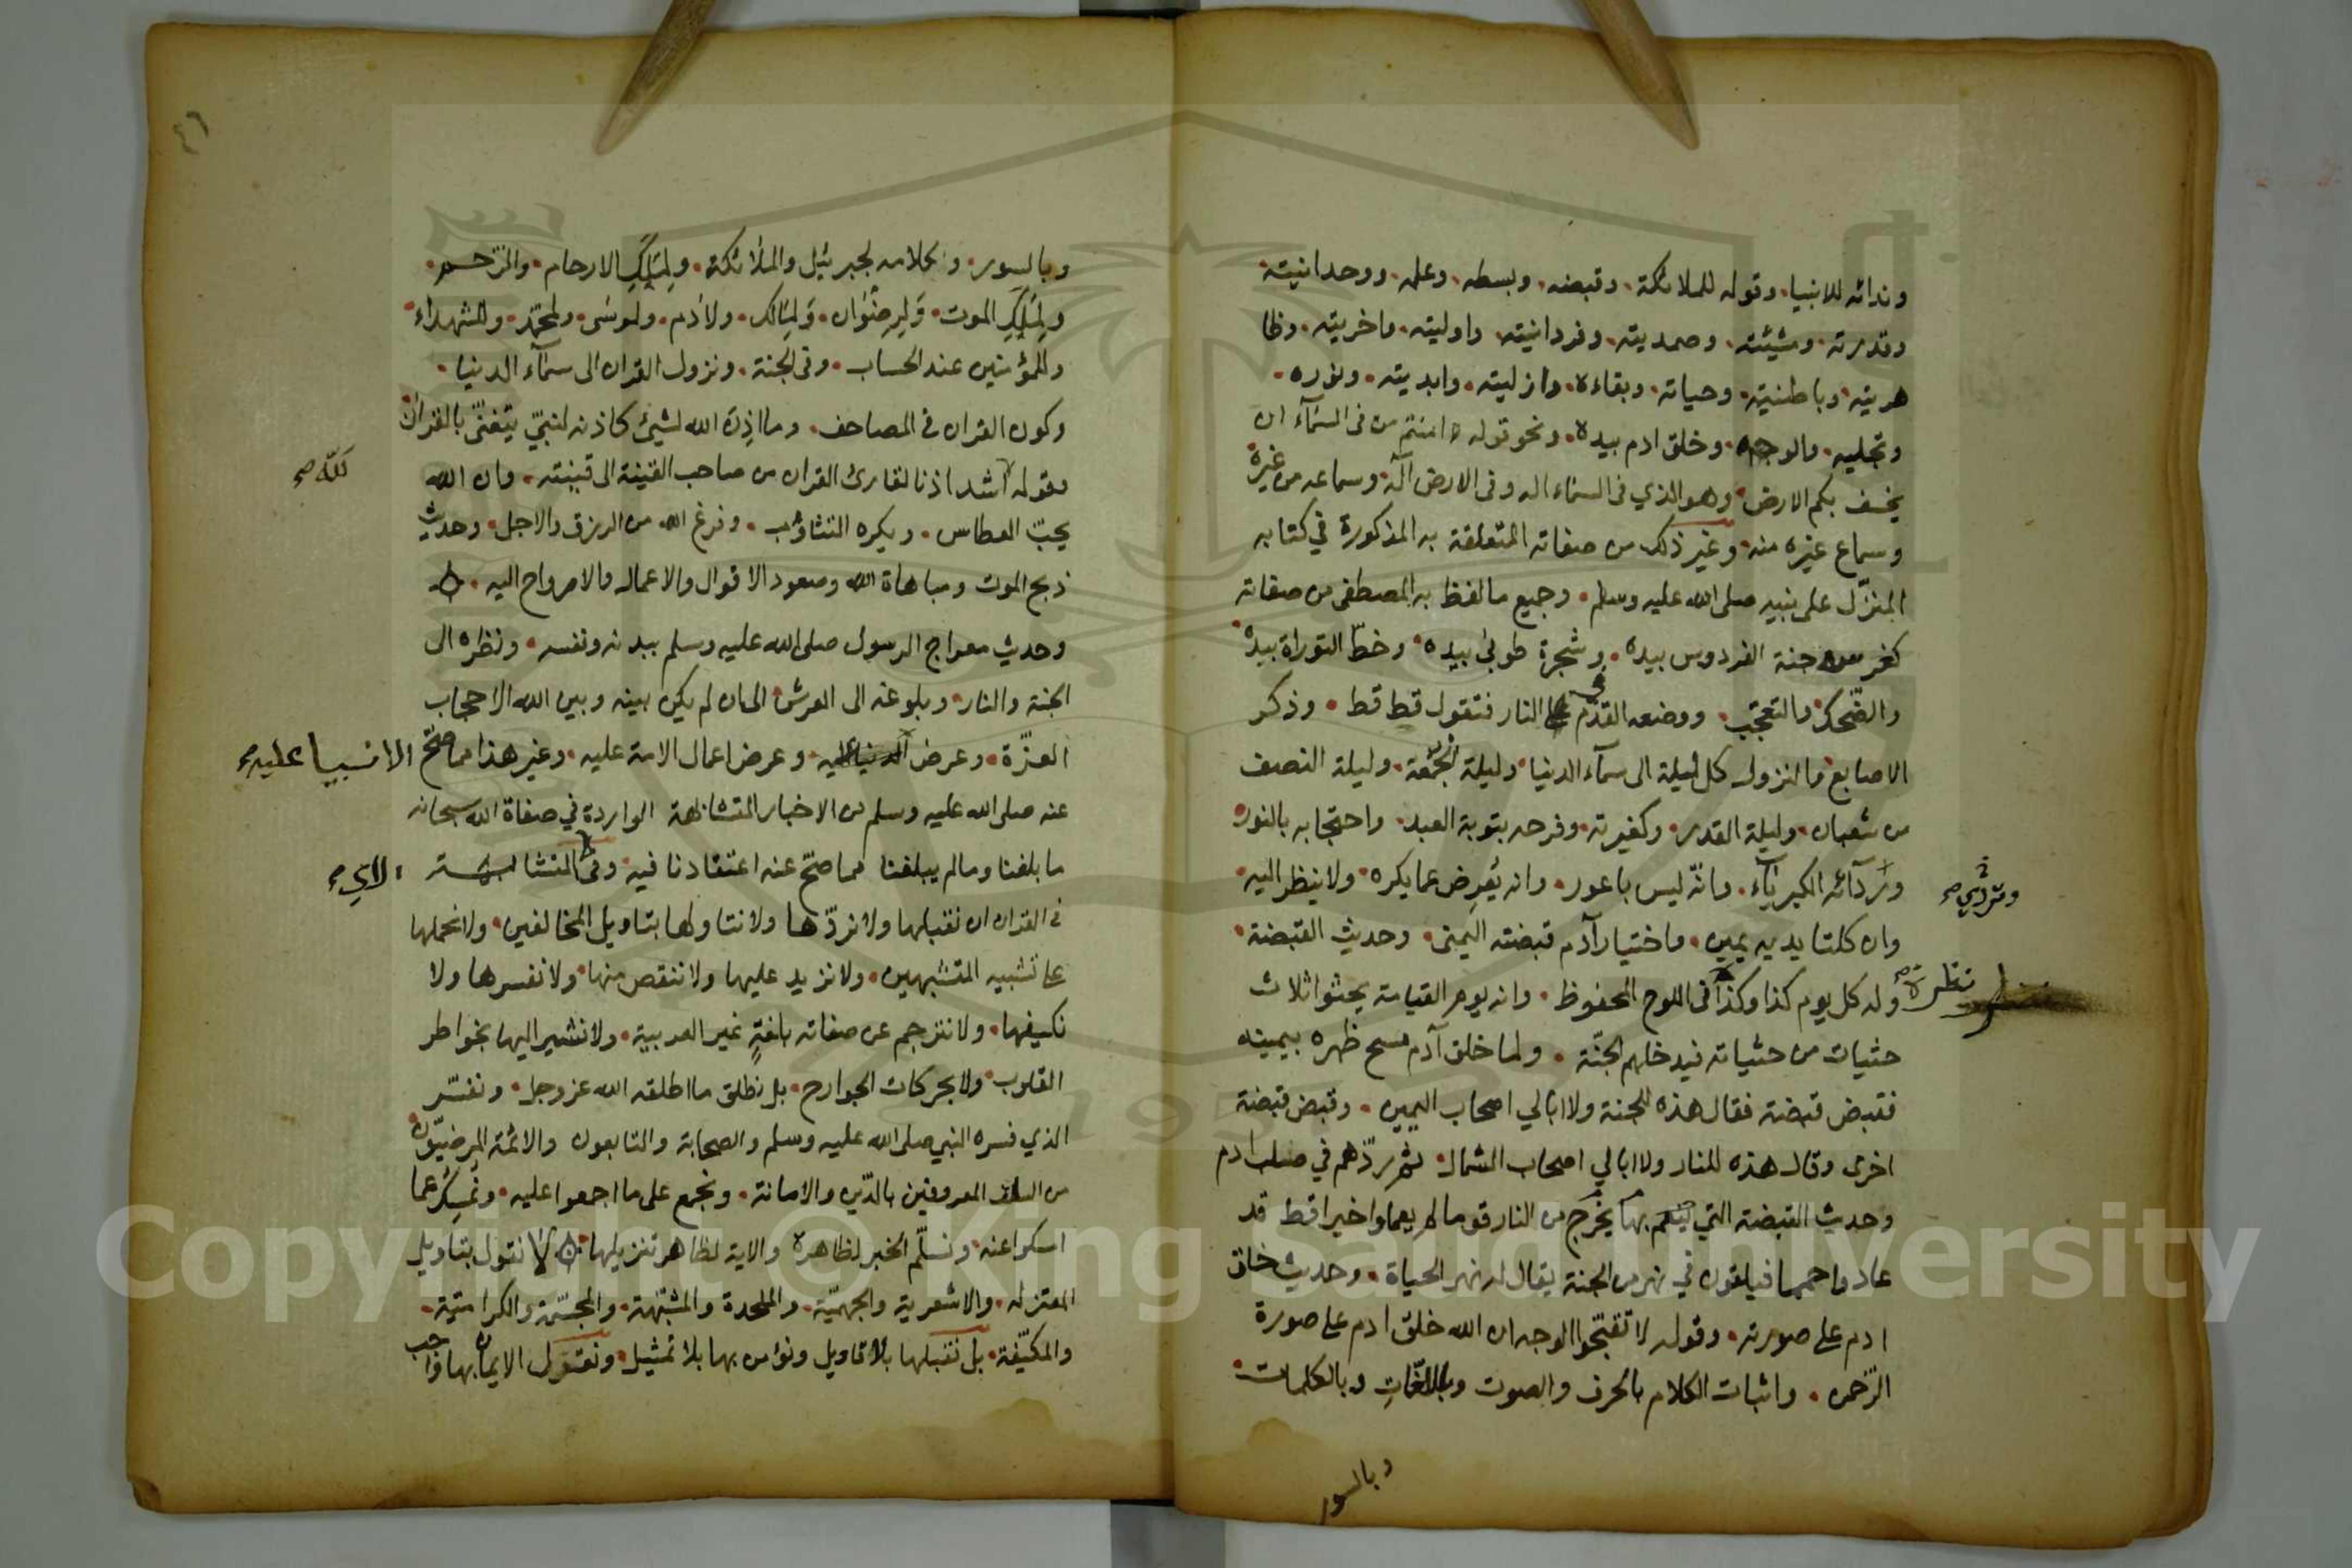 وندائه للانبيا وقوله للملائكة وقبضه وبسطه وعلمه ووحدانيته
وقدرته ومشيئته وصمديته وفردانيته واوليته واخريته وظا
هريته وباطنيته وحياته وبقاءه وازليته وابديته ونوره
وتجليه والوجه وخلق ادم بيده ونحو قوله ءامنتم من فى السمآء ان
يخسف بكم الارض وهو الذي فى السماء اله وفى الارض اله وسماعه من غيره
وسماع غيره منه وغير ذلك من صفاته المتعلقة به المذكورة في كتابه
المنزّل على نبيه صلى الله عليه وسلم وجميع مالفظ به المصطفى من صفاته
كغرسه جنة الفردوس بيده وشجرة طوبى بيده وخطّ التوراة بيده
والضّحك والتعجّب ووضعه القدم على النار فتقول قط قط وذكر
في
الاصابع والنزول كل ليلة الى سمآء الدنيا وليلة الجمعة وليلة النصف
من شعبان وليلة القدر وكغيرته وفرحه بتوبة العبد واحتجابه بالنور
وبردآئه الكبرياء وانّه ليس باعور وانه يُعرض عما يكره ولا ينظر اليه
وان كلتا يديه يمين واختيار آدم قبضته اليمنى وحديث القبضة
وله كل يوم كذا وكذا فى اللوح المحفوظ وانه يوم القيامة يحثوا ثلاث
نظرة
حثيات من حثياته فيدخلهم الجنّة ولما خلق آدم مسح ظهره بيمينه
فقبض قبضة فقال هذه للجنة ولا ابالي اصحاب اليمين وقبض قبضة
اخرى وقال هذه للنار ولا ابالي اصحاب الشمال ثم ردّهم في صلب ادم
وحديث القبضة التي يخرج بها من النار قوما لم يعملوا خيرا قط قد
عادوا حمما فيلقون في نهر من الجنة يقال له نهر الحياة وحديث خلق
ادم على صورته وقوله لا تقبّحوا الوجه ان الله خلق ادم على صورة
الرّحمن واثبات الكلام بالحرف والصوت وباللغات وبالكلمات
وبالسور
٤٦
وبالسور وكلامه لجبرئيل والملائكة ولملك الارحام والرحم
ولملك الموت ولرضوان ولمالك ولآدم ولموسى ولمحمّد وللشهداء
وللمؤمنين عند الحساب وفى الجنة ونزول القران الى سمآء الدنيا
وكون القران في المصاحف وما اذن الله لشيئ كاذنه لنبيّ يتغنّى بالقران
وقوله اشد اذنا لقارئ القران من صاحب القينة الى قينته وان الله
لله صح
يحبّ العطاس ويكره التثاؤب وفرغ الله من الرزق والاجل وحديث
ذبح الموت ومباهاة الله وصعود الاقوال والاعمال والارواح اليه
وحديث معراج الرسول صلى الله عليه وسلم ببدنه ونفسه ونظره الى
الجنة والنار وبلوغه الى العرش الى ان لم يكن بينه وبين الله الا حجاب
العزّة وعرض الانبيا عليه وعرض اعمال الامة عليه وغير هذا مما صحّ
الانبيا عليه
عنه صلى الله عليه وسلم من الاخبار المتشابهة الواردة في صفاة الله سبحانه
ما بلغنا وما لم يبلغنا مما صحّ عنه اعتقادنا فيه وفى المتشابهة
الآي
فى القران ان نقبلها ولا نردّها ولا نتاولها بتاويل المخالفين ولا نحملها
على تشبيه المتشبهين ولا نزيد عليها ولا ننقص منها ولا نفسرها ولا
نكيفها ولا نترجم عن صفاته بلغةٍ غير العربية ولا نشير اليها بخواطر
القلوب ولا بحركات الجوارح بل نطلق ما اطلقه الله عز وجل ونفسّر
الذي فسره النبي صلى الله عليه وسلم والصحابة والتابعون والائمة المرضيّون
من السلف المعروفين بالدّين والامانة ونجمع على ما اجمعوا عليه ونمسك عما
امسكوا عنه ونسلّم الخبر لظاهره والاية لظاهر تنزيلها لا نقول بتاويل
المعتزله والاشعرية والجهميّة والملحدة والمشبّهة والمجسّمة والكرامية
والمكيّفة بل نقبلها بلا تاويل ونؤمن بها بلا تمثيل ونقول الايمان بها واجب